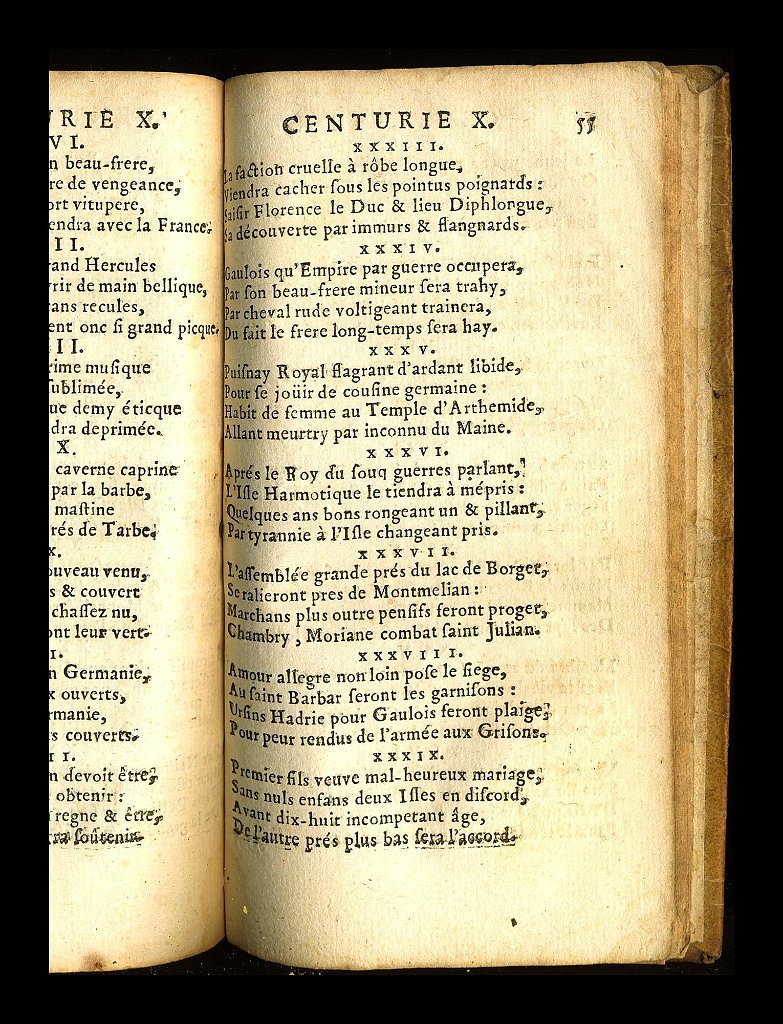 RIE X.
VI.
beau-frere,
re de vengeance,
ort vitupere,
endra avec la France.
II.
rand Hercules
rir de main bellique,
ans recules,
ent onc si grand picque.
II.
rime musique
sublimée,
ue demy éticque
dra deprimée.
X.
caverne caprine
par la barbe,
mastine
rés de Tarbe.
X.
ouveau venu,
s & couvert
chassez nu,
ont leur vert.
I.
n Germanie,
x ouverts,
rmanie,
s couverts.
II.
n devoit être,
obtenir :
regne & être,
ra soûtenir.
CENTURIE X. 55
XXXIII.
La faction cruelle à rôbe longue,
Viendra cacher ſous les pointus poignards :
Saiſir Florence le Duc & lieu Diphlongue,
Sa découverte par immurs & flangnards.
XXXIV.
Gaulois qu'Empire par guerre occupera,
Par ſon beau-frere mineur ſera trahy,
Par cheval rude voltigeant trainera,
Du fait le frere long-temps ſera hay.
XXXV.
Puiſnay Royal flagrant d'ardant libide,
Pour ſe joüir de couſine germaine :
Habit de femme au Temple d'Arthemide,
Allant meurtry par inconnu du Maine.
XXXVI.
Aprés le Roy du ſouq guerres parlant,
L'Iſle Harmotique le tiendra à mépris :
Quelques ans bons rongeant un & pillant,
Par tyrannie à l'Iſle changeant pris.
XXXVII.
L'aſſemblée grande prés du lac de Borget,
Se ralieront pres de Montmelian :
Marchans plus outre penſifs feront proget,
Chambry , Moriane combat ſaint Julian.
XXXVIII.
Amour allegre non loin poſe le ſiege,
Au ſaint Barbar ſeront les garniſons :
Urſins Hadrie pour Gaulois feront plaige,
Pour peur rendus de l'armée aux Griſons.
XXXIX.
Premier fils veuve mal-heureux mariage,
Sans nuls enfans deux Iſles en diſcord,
Avant dix-huit incompetant âge,
De l'autre prés plus bas ſera l'accord.